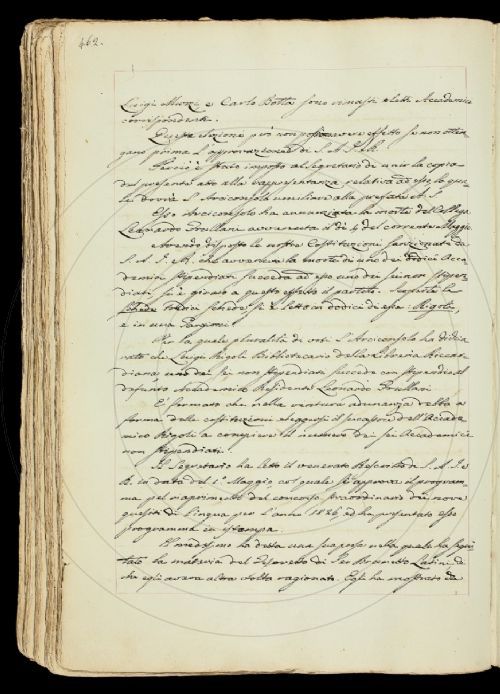 462.
Luigi Muzzi, e Carlo Botta sono rimasti eletti Accademici
corrispondenti.
Queste elezioni però non possono avere effetto se non otten-
gano prima l'approvazione di S. A. I. R.
Perciò è stato imposto al Segretario de unir la copia
del presente atto alla rappresentanza relativa ad esse la qua-
le dovrà l'Arciconsolo umiliare alla prefata A. S.
Esso Arciconsolo ha annunziata la morte del Collega
Leonardo Frullani avvenuta il dì 4 del corrente Maggio
e avendo disposto le nostre Costituzioni sanzionate da
S. A. I. R. che avvenuta la morte di uno dei dodici Acca-
demici stipendiati succeda ad esso uno dei sei non stipen-
diati si è girato a questo effetto il partito.
schede si è letto in dodici di esse: Rigoli,
e in una
Per la quale pluralità di voti l'Arciconsolo ha dichia-
rato che Luigi Rigoli Bibliotecario della Libreria Riccar-
diana, uno dei sei non stipendiati succede con stipendio al
defunto Accademico Residente Leonardo Frullani.
E' fermato che nella ventura adunanza retta a
forma delle costituzioni eleggasi il successore dell'Accade-
mico Rigoli a compiere il numero dei sei Accademici
non stipendiati.
Il Segretario ha letto il venerato Rescritto di S. A. I. e
R. in data del 1° Maggio col quale si approva il program-
ma pel riaprimento del concorso straordinario dei nove
quesiti di lingua per l'anno 1826, ed ha presentato esso
programma in istampa.
Il medesimo ha detta una nella quale ha
la materia del Tesoretto di Ser Brunetto Latini, di
che egli aveva altra volta ragionato. Egli ha mostrato da